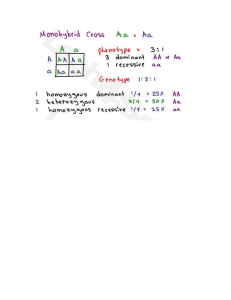 Monohybrid Cross Aa x Aa
A a
phenotype = 3:1
A AA Aa
3 dominant AA or Aa
a Aa aa
1 recessive aa
Genotype 1:2:1
1 homozygous dominant 1/4 = 25% AA
2 heterozygous 2/4 = 50% Aa
1 homozygous recessive 1/4 = 25% aa